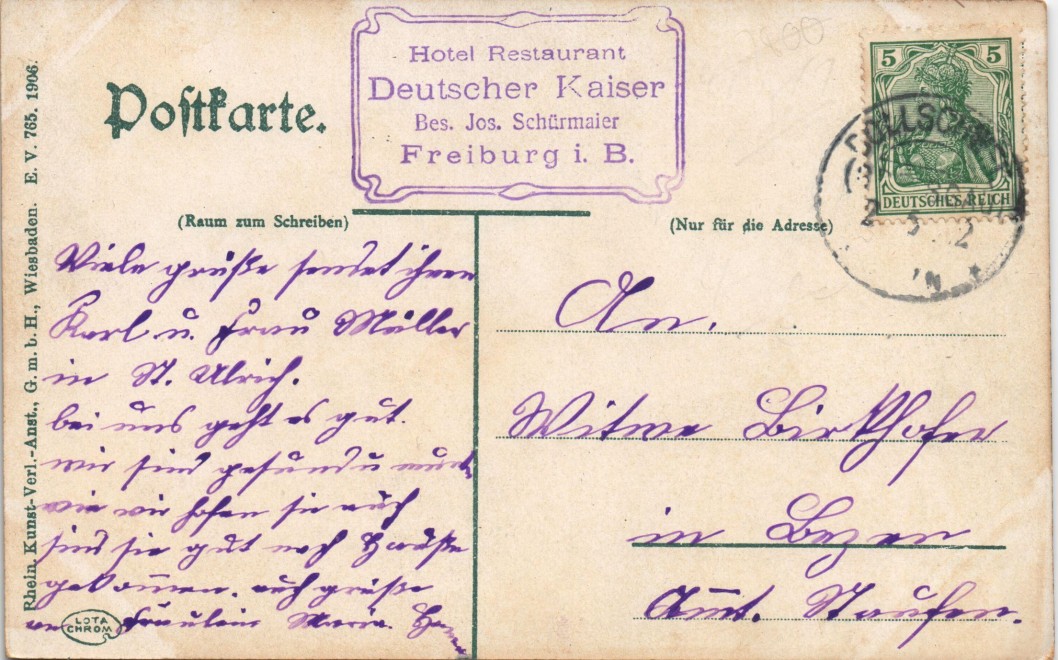 Postkarte.
Hotel Restaurant
Deutscher Kaiser
Bes. Jos. Schürmaier
Freiburg i. B.
5 5
DEUTSCHES REICH
(Raum zum Schreiben)
(Nur für die Adresse)
Viele grüße sendet ihnen
Karl u. Frau Müller
in St. Ulrich.
bei uns geht es gut.
wir sind gesund u
wie wir hofen sie auch
sind sie gut nach Hauße
gekommen. auch grüße
an Fräulein Maria.
An.
Witwe Birkhofer
in
Amt. Staufen.
Rhein. Kunst-Verl.-Anst., G. m. b. H., Wiesbaden. E. V. 765. 1906.
LOTA
CHROM